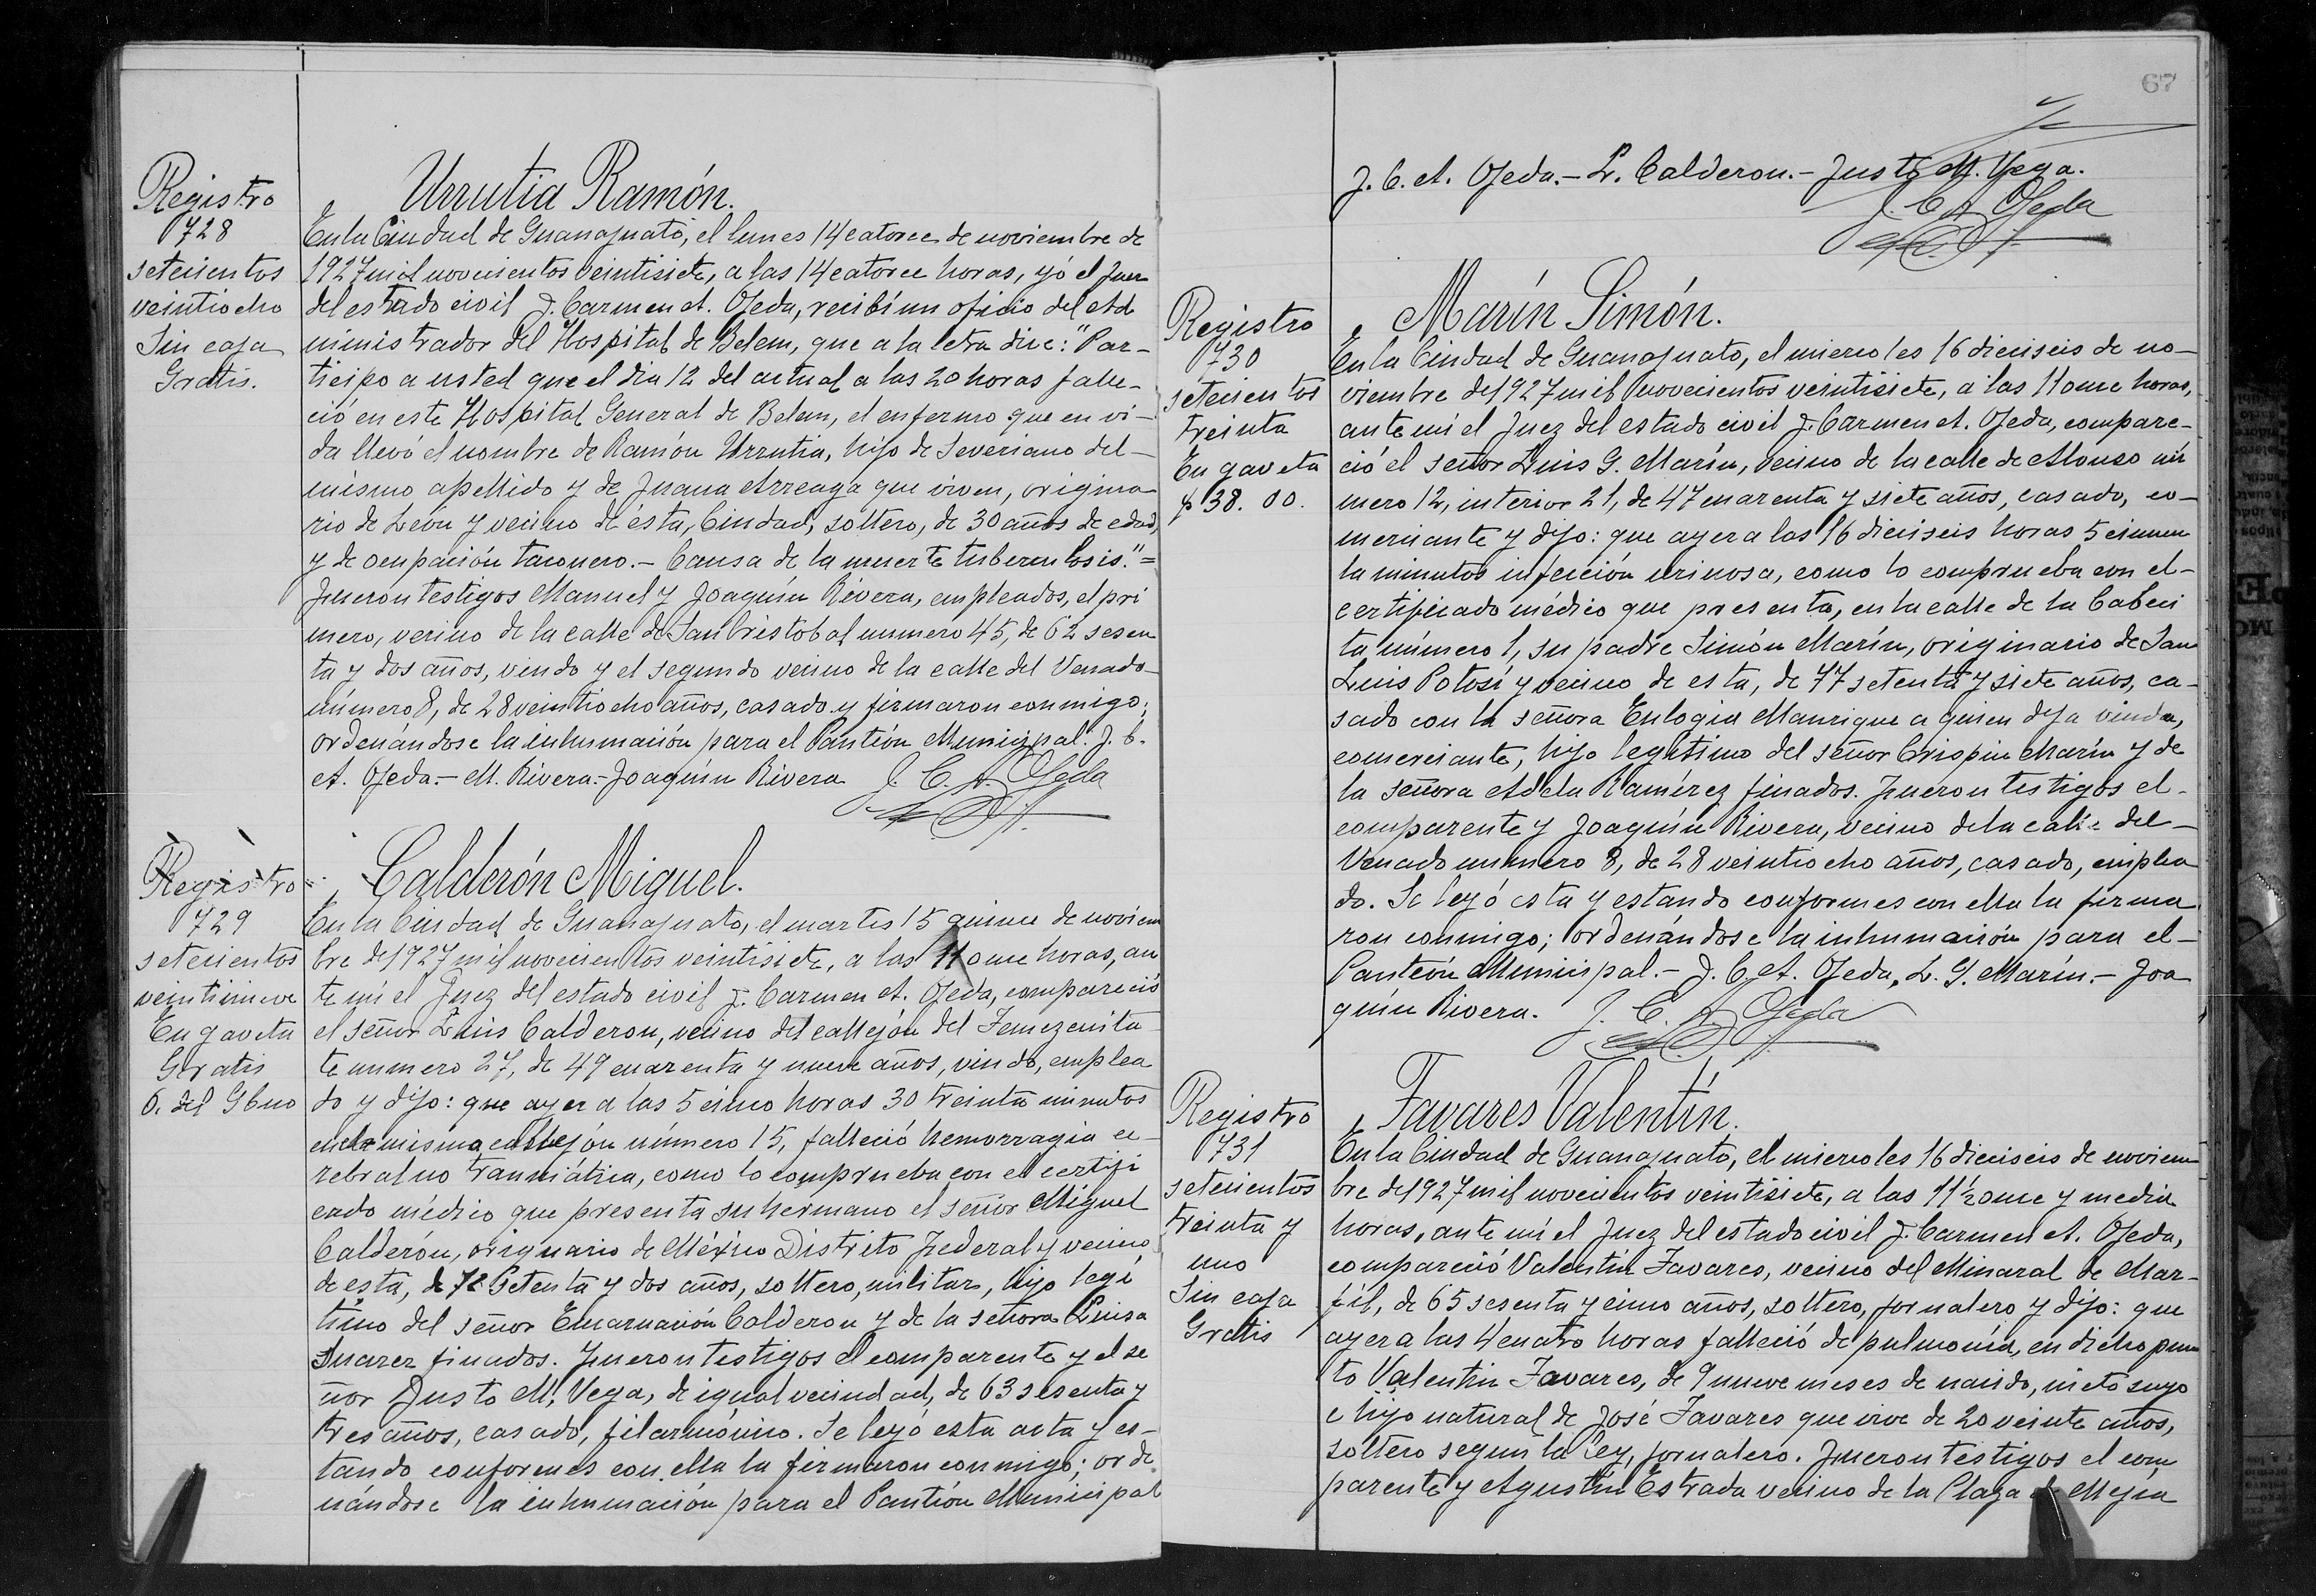 Registro
728
setecientos
veintiocho
Sin caja
Gratis.
Urrutia Ramón.
En la Ciudad de Guanajuato, el lunes 14 catorce de noviembre de
1927 mil novecientos veintisiete, a las 14 catorce horas, yó el Juez
del estado civil J. Carmen A. Ojeda, recibí un oficio del Ad
ministrador del Hospital de Belem, que a la letra dice: "Par-
ticipo a usted que el dia 12 del actual a las 20 horas falle-
ció en este Hospital General de Belem, el enfermo que en vi-
da llevó el nombre de Ramón Urrutia, hijo de Severiano del-
mismo apellido y de Juana Arreaga que viven, origina-
rio de León y vecino de ésta, Ciudad, soltero, de 30 años de edad,
y de ocupación taconero.- Causa de la muerte tuberculosis."=
Fueron testigos Manuel y Joaquín Rivera, empleados, el pri
mero, vecino de la calle de San Cristobal numero 45, de 62 sesen
ta y dos años, viudo y el segundo vecino de la calle del Venado-
número 8, de 28 veintiocho años, casado y firmaron conmigo;
ordenándose la inhumación para el Panteón Municipal. J. C.
A. Ojeda.- M. Rivera.- Joaquín Rivera J. C. A. Ojeda
Registro
729
setecientos
veintinueve
En gaveta
Gratis
O. del Gbno
Calderón Miguel.
En la Ciudad de Guanajuato, el martes 15 quince de noviem
bre de 1927 mil novecientos veintisiete, a las 11 once horas, an
te mí el Juez del estado civil J. Carmen A. Ojeda, compareció
el señor Luis Calderon, vecino del callejón del Temezcuita
te numero 27, de 49 cuarenta y nueve años, viudo, emplea
do y dijo: que ayer a las 5 cinco horas 30 treinta minutos
en el mismo callejón número 15, falleció hemorragia ce-
rebral no traumática, como lo comprueba con el certifi
cado médico que presenta su hermano el señor Miguel
Calderón, originario de México Distrito Federal y vecino
de esta, de 72 setenta y dos años, soltero, militar, hijo legí
timo del señor Encarnación Calderon y de la señora Luisa
Suarez finados. Fueron testigos el comparente y el se
ñor Justo M. Vega, de igual vecindad, de 63 sesenta y
tres años, casado, filarmónico. Se leyó esta acta y es-
tando conformes con ella la firmaron conmigo; orde
nándose la inhumación para el Panteón Municipal
67
J. C. A. Ojeda.- L. Calderon.- Justo M. Vega.
J. C. A. Ojeda
Registro
730
setecientos
treinta
En gaveta
$38.00.
Marín Simón.
En la Ciudad de Guanajuato, el miercoles 16 dieciseis de no-
viembre de 1927 mil novecientos veintisiete, a las 11 once horas,
ante mí el Juez del estado civil J. Carmen A. Ojeda, compare-
ció el señor Luis G. Marín, vecino de la calle de Alonso nú
mero 12, interior 21, de 47 cuarenta y siete años, casado, co-
merciante y dijo: que ayer a las 16 dieciseis horas 5 cincuen
ta minutos infección urinosa, como lo comprueba con el-
certificado médico que presenta, en la calle de la Cabeci
ta número 1, su padre Simón Marín, originario de San
Luis Potosí y vecino de esta, de 77 setenta y siete años, ca-
sado con la señora Eulogia Manrique a quien deja viuda,
comerciante, hijo legítimo del señor Crispin Marín y de
la señora Adela Ramírez finados. Fueron testigos el-
comparente y Joaquín Rivera, vecino de la calle del-
Venado numero 8, de 28 veintiocho años, casado, emplea
do. Se leyó esta y estando conformes con ella la firma
ron conmigo; ordenándose la inhumación para el-
Panteón Municipal.- J. C. A. Ojeda, L. G. Marín.- Joa
quín Rivera. J. C. A. Ojeda
Registro
731
setecientos
treinta y
uno
Sin caja
Gratis
Tavares Valentín.
En la Ciudad de Guanajuato, el miercoles 16 dieciseis de noviem
bre de 1927 mil novecientos veintisiete, a las 11½ once y media
horas, ante mí el Juez del estado civil J. Carmen A. Ojeda,
compareció Valentín Tavares, vecino del Minaral de Mar-
fil, de 65 sesenta y cinco años, soltero, jornalero y dijo: que
ayer a las 4 cuatro horas falleció de pulmonía, en dicho pun
to Valentin Tavares, de 9 nueve meses de nacido, nieto suyo
e hijo natural de José Tavares que vive de 20 veinte años,
soltero segun la ley, jornalero. Fueron testigos el com
parente y Agustín Estrada vecino de la Plaza Mejía